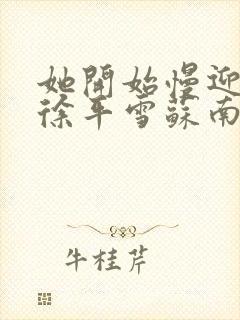 她開始慢迎
徐平雪蘇南
牛桂芹